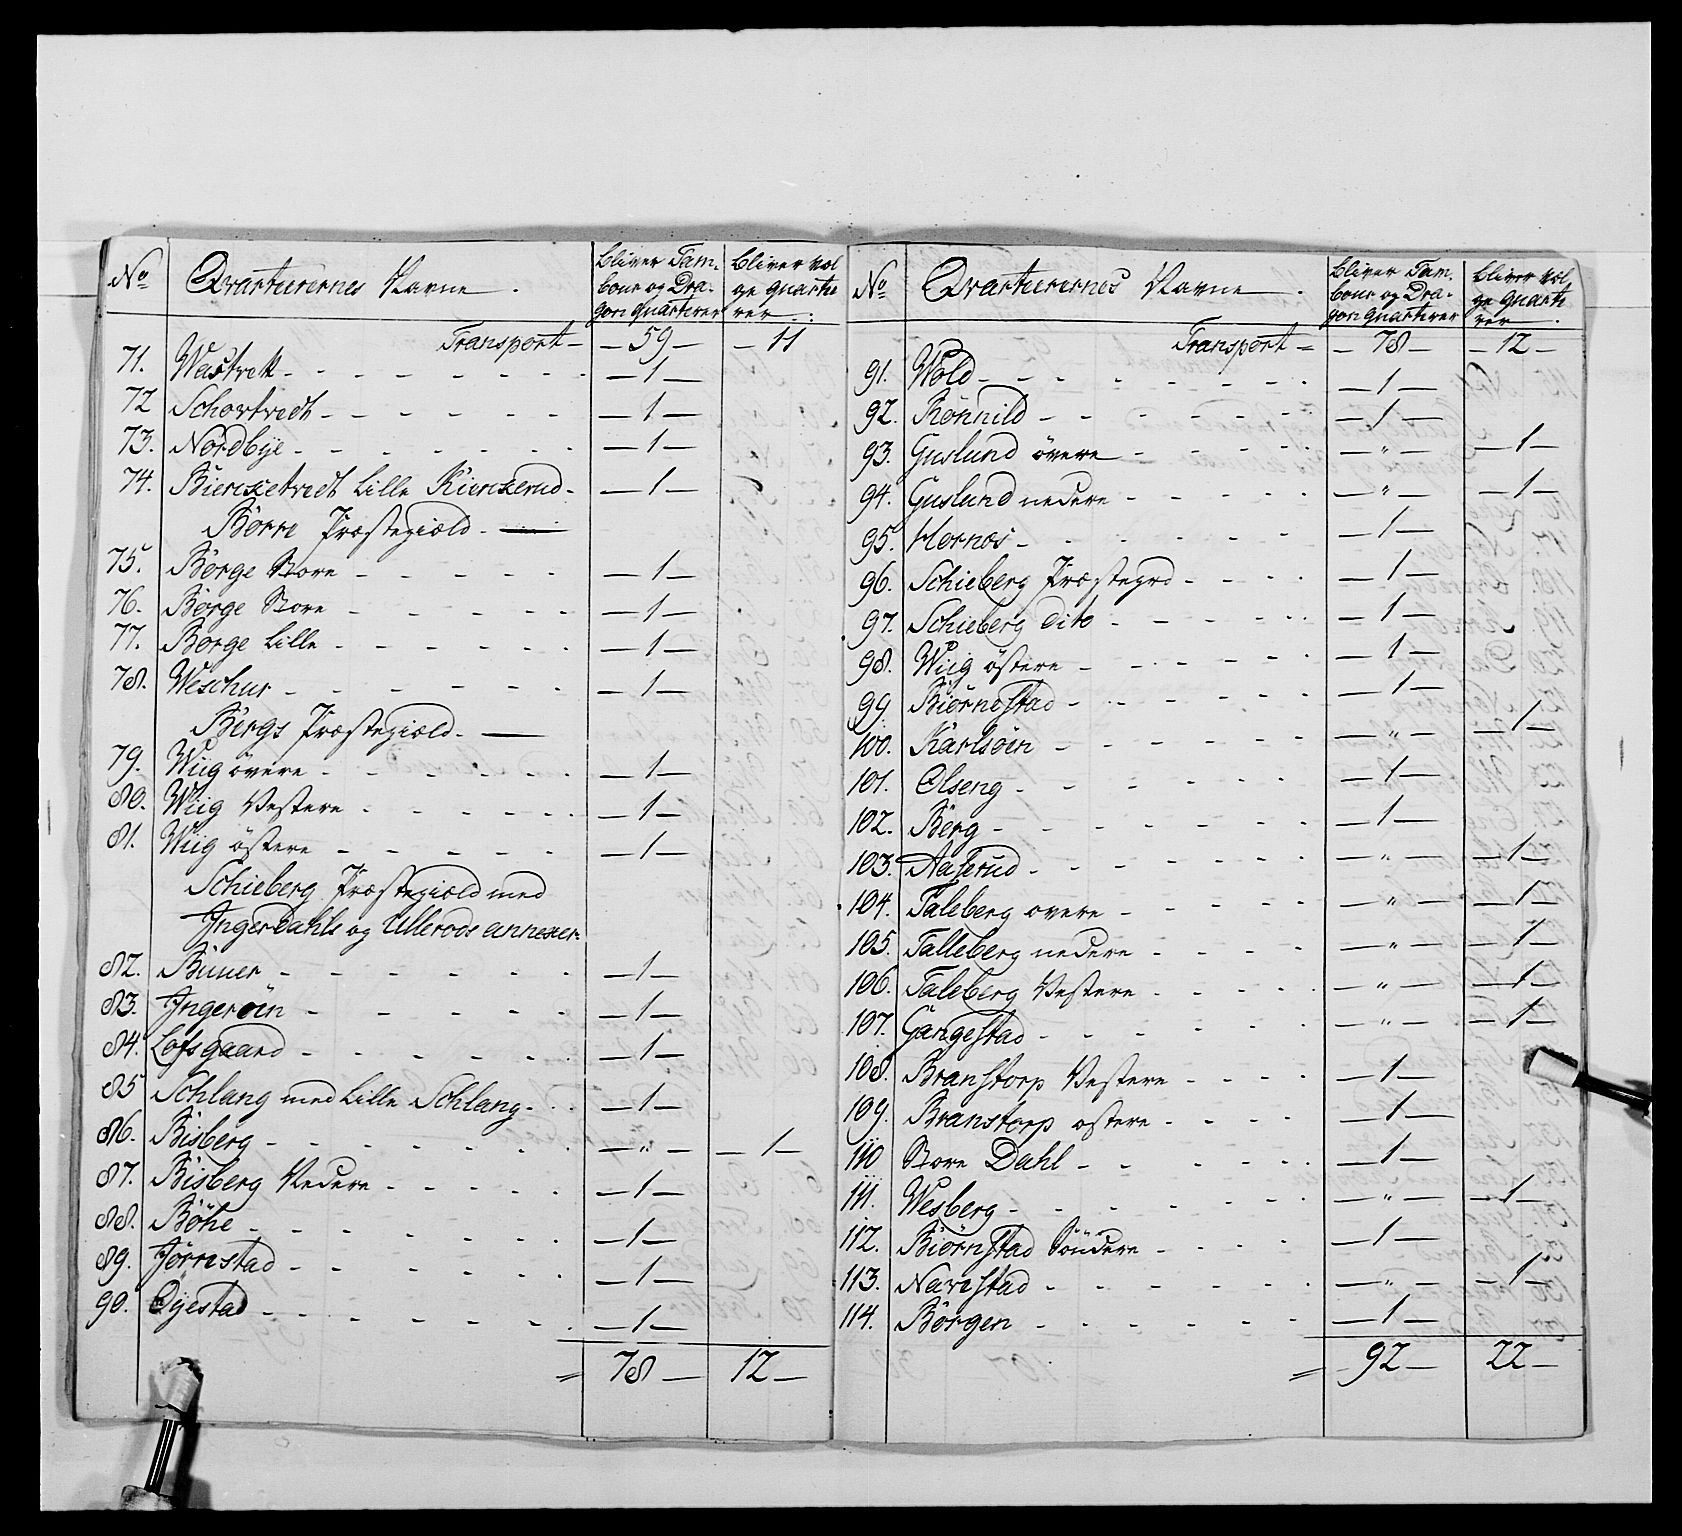 No Qvarteerernes Navne. bliver Tam- bliver vol
bour og Dra- ge quarte
gon quarterer rer
Transport - 59 - - 11
71. Wastvett - 1 -
72 Schortvedt - 1 -
73. Nordbye - 1 -
74. Bierchetvedt Lille Kirckerud - 1 -
Börre Præstegiæld.
75. Börge Store - 1 -
76. Börge Store - 1 -
77. Borge Lille - 1 -
78. Weschur - 1 -
Bergs Præstegiæld.
79. Wiig övere - 1 -
80. Wiig Vestere - 1 -
81. Wiig östere - 1 -
Schieberg Præstegiæld med
Ingerdahls og Ullerods annexer.
82. Buuer - 1 -
83. Ingeröin - 1 -
84. Lofsgaard - 1 -
85 Schlang med Lille Schlang - 1 -
86. Bisberg - " - - 1 -
87. Bisberg Nedere - 1 -
88. Böhe - 1 -
89. Jörnstad - 1 -
90. Öyestad - 1 -
= 78 - 12 -
No Qvarteerernes Navne. bliver Tam- bliver vol
bour og Dra- ge quarte
gon quarterer rer
Transport = - 78 - - 12 -
91. Wold - 1 -
92. Rönnild - 1 -
93. Guslund övere - " - - 1 -
94. Guslund nedere - " - - 1 -
95. Hornæs - 1 -
96. Schieberg Præstegrd - 1 -
97. Schieberg dito - 1 -
98. Wiig östere - 1 -
99. Biörnestad - 1 -
100. Karlsöin - " - - 1 -
101. Olseng - 1 -
102. Berg - 1 -
103. Aaserud - " - - 1 -
104. Taleberg overe - " - - 1 -
105. Talleberg nedere - " - - 1 -
106. Taleberg Vestere - " - - 1 -
107. Gangestad - " - - 1 -
108. Branstorp Vestere - 1 -
109. Branstorp ostere - 1 -
110 Store Dahl - 1 -
111. Wesberg - " - - 1 -
112. Biörnstad Söndere - 1 -
113. Navestad - " - - 1 -
114. Börgen - 1 -
= 92 - 22 -